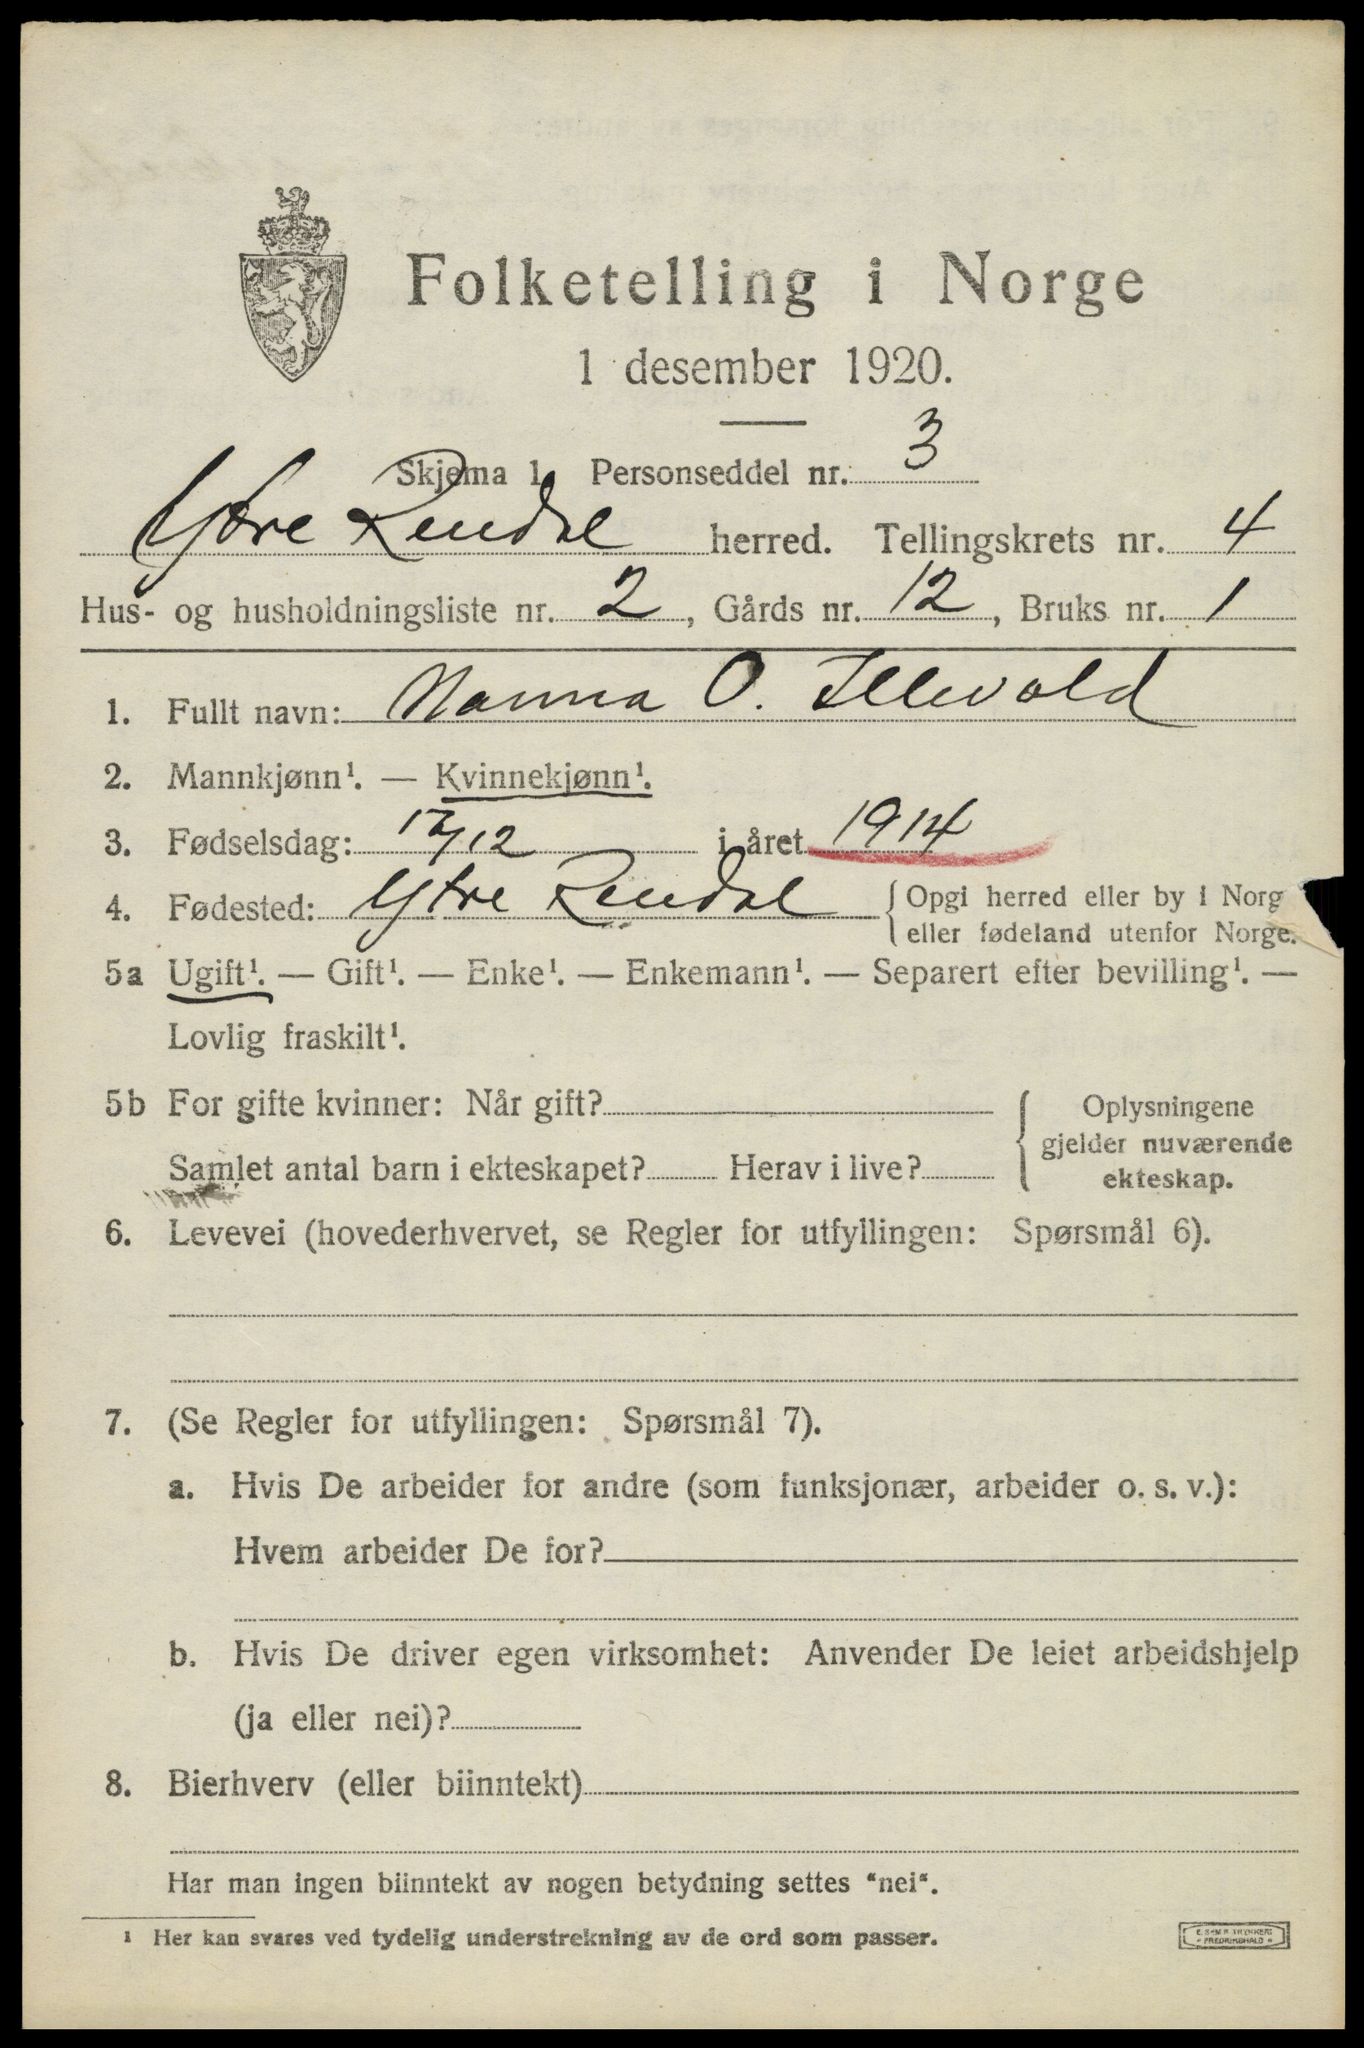 Folketelling i Norge
1 desember 1920.
Skjema 1 Personseddel nr. 3
Ytre Rendal herred. Tellingskrets nr. 4
Hus- og husholdningsliste nr. 2, Gårds nr. 12, Bruks nr. 1
1. Fullt navn: Nanna O. Illevold
2. Mannkjønn¹. — Kvinnekjønn¹.
3. Fødselsdag: 17/12 i året 1914
4. Fødested: Ytre Rendal { Opgi herred eller by i Norg
eller fødeland utenfor Norge.
5a Ugift¹. — Gift¹. — Enke¹. — Enkemann¹. — Separert efter bevilling¹. —
Lovlig fraskilt¹.
5b For gifte kvinner: Når gift?
Samlet antal barn i ekteskapet? Herav i live?
{ Oplysningene
gjelder nuværende
ekteskap.
6. Levevei (hovederhvervet, se Regler for utfyllingen: Spørsmål 6).
7. (Se Regler for utfyllingen: Spørsmål 7).
a. Hvis De arbeider for andre (som funksjonær, arbeider o. s. v.):
Hvem arbeider De for?
b. Hvis De driver egen virksomhet: Anvender De leiet arbeidshjelp
(ja eller nei)?
8. Bierhverv (eller biinntekt)
Har man ingen biinntekt av nogen betydning settes "nei".
¹ Her kan svares ved tydelig understrekning av de ord som passer.
FREDRIKSHALD